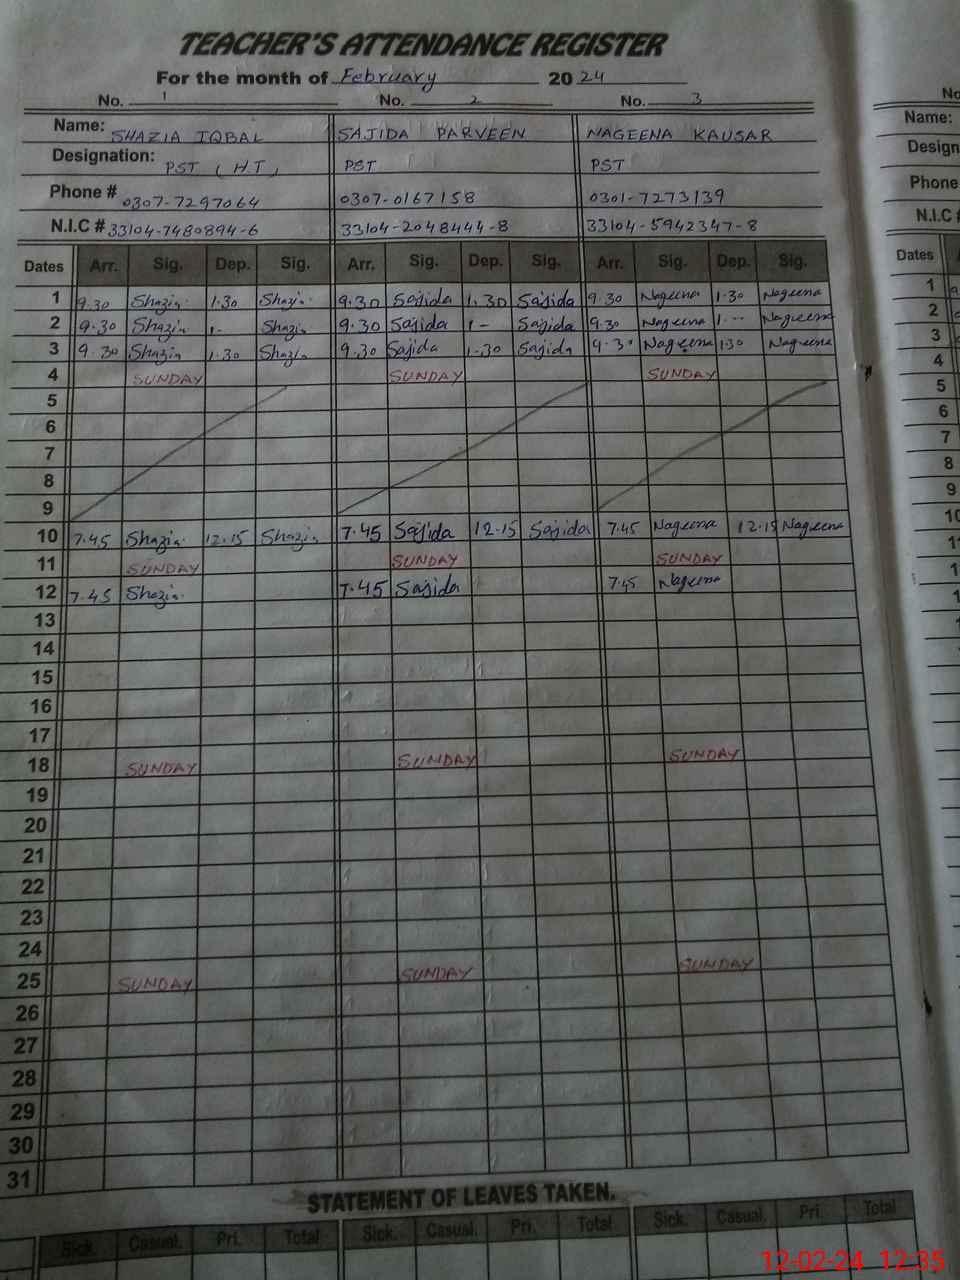 TEACHER'S ATTENDANCE REGISTER
For the month of February 20 24
No. 1 No. 2 No. 3 No
Name: SHAZIA IQBAL SAJIDA PARVEEN NAGEENA KAUSAR Name:
Designation: PST (H.T) PST PST Design
Phone # 0307-7297064 0307-0167158 0301-7273139 Phone
N.I.C # 33104-7480894-6 33104-2048444-8 33104-5942347-8 N.I.C #
Dates Arr. Sig. Dep. Sig. Arr. Sig. Dep. Sig. Arr. Sig. Dep. Sig. Dates
1 9.30 Shazia 1.30 Shazia 9.30 Sajida 1.30 Sajida 9.30 Nageena 1.30 Nageena 1
2 9.30 Shazia 1- Shazia 9.30 Sajida 1- Sajida 9.30 Nageena 1-- Nageena 2
3 9.30 Shazia 1.30 Shazia 9.30 Sajida 1-30 Sajida 9.30 Nageena 1.30 Nageena 3
4 SUNDAY SUNDAY SUNDAY 4
5 5
6 6
7 7
8 8
9 9
10 7.45 Shazia 12.15 Shazia 7.45 Sajida 12-15 Sajida 7.45 Nageena 12.15 Nageena 10
11 SUNDAY SUNDAY SUNDAY
12 7.45 Shazia 7.45 Sajida 7.45 Nageena
13
14
15
16
17
18 SUNDAY SUNDAY SUNDAY
19
20
21
22
23
24
25 SUNDAY SUNDAY SUNDAY
26
27
28
29
30
31
STATEMENT OF LEAVES TAKEN.
Sick. Casual. Pri. Total Sick. Casual. Pri. Total Sick. Casual. Pri. Total
12-02-24 12:35